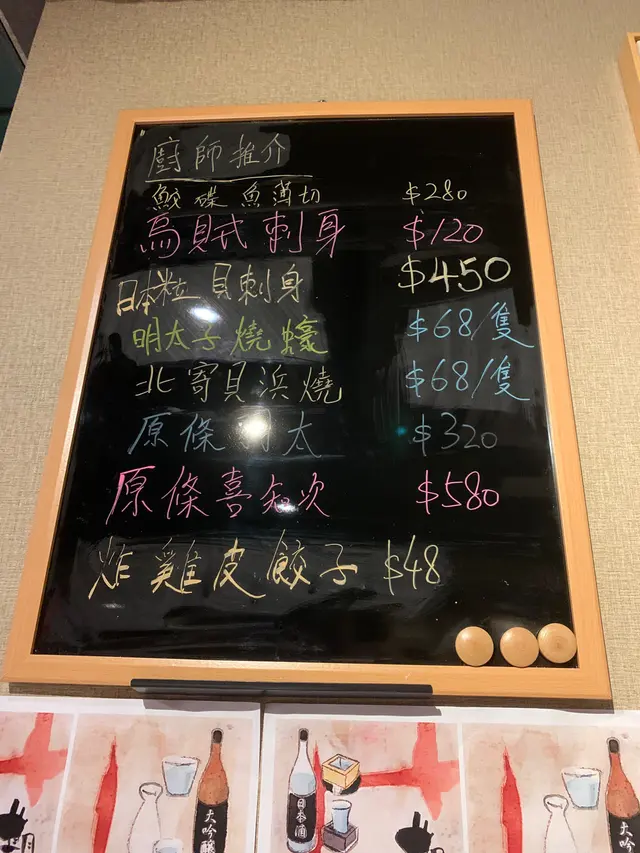 廚師推介
鮫碟魚薄切 $280
烏賊刺身 $120
日本粒貝刺身 $450
明太子燒蠔 $68/隻
北寄貝浜燒 $68/隻
原條 太 $320
原條喜知次 $580
炸雞皮餃子 $48
大吟釀
日本酒
大吟